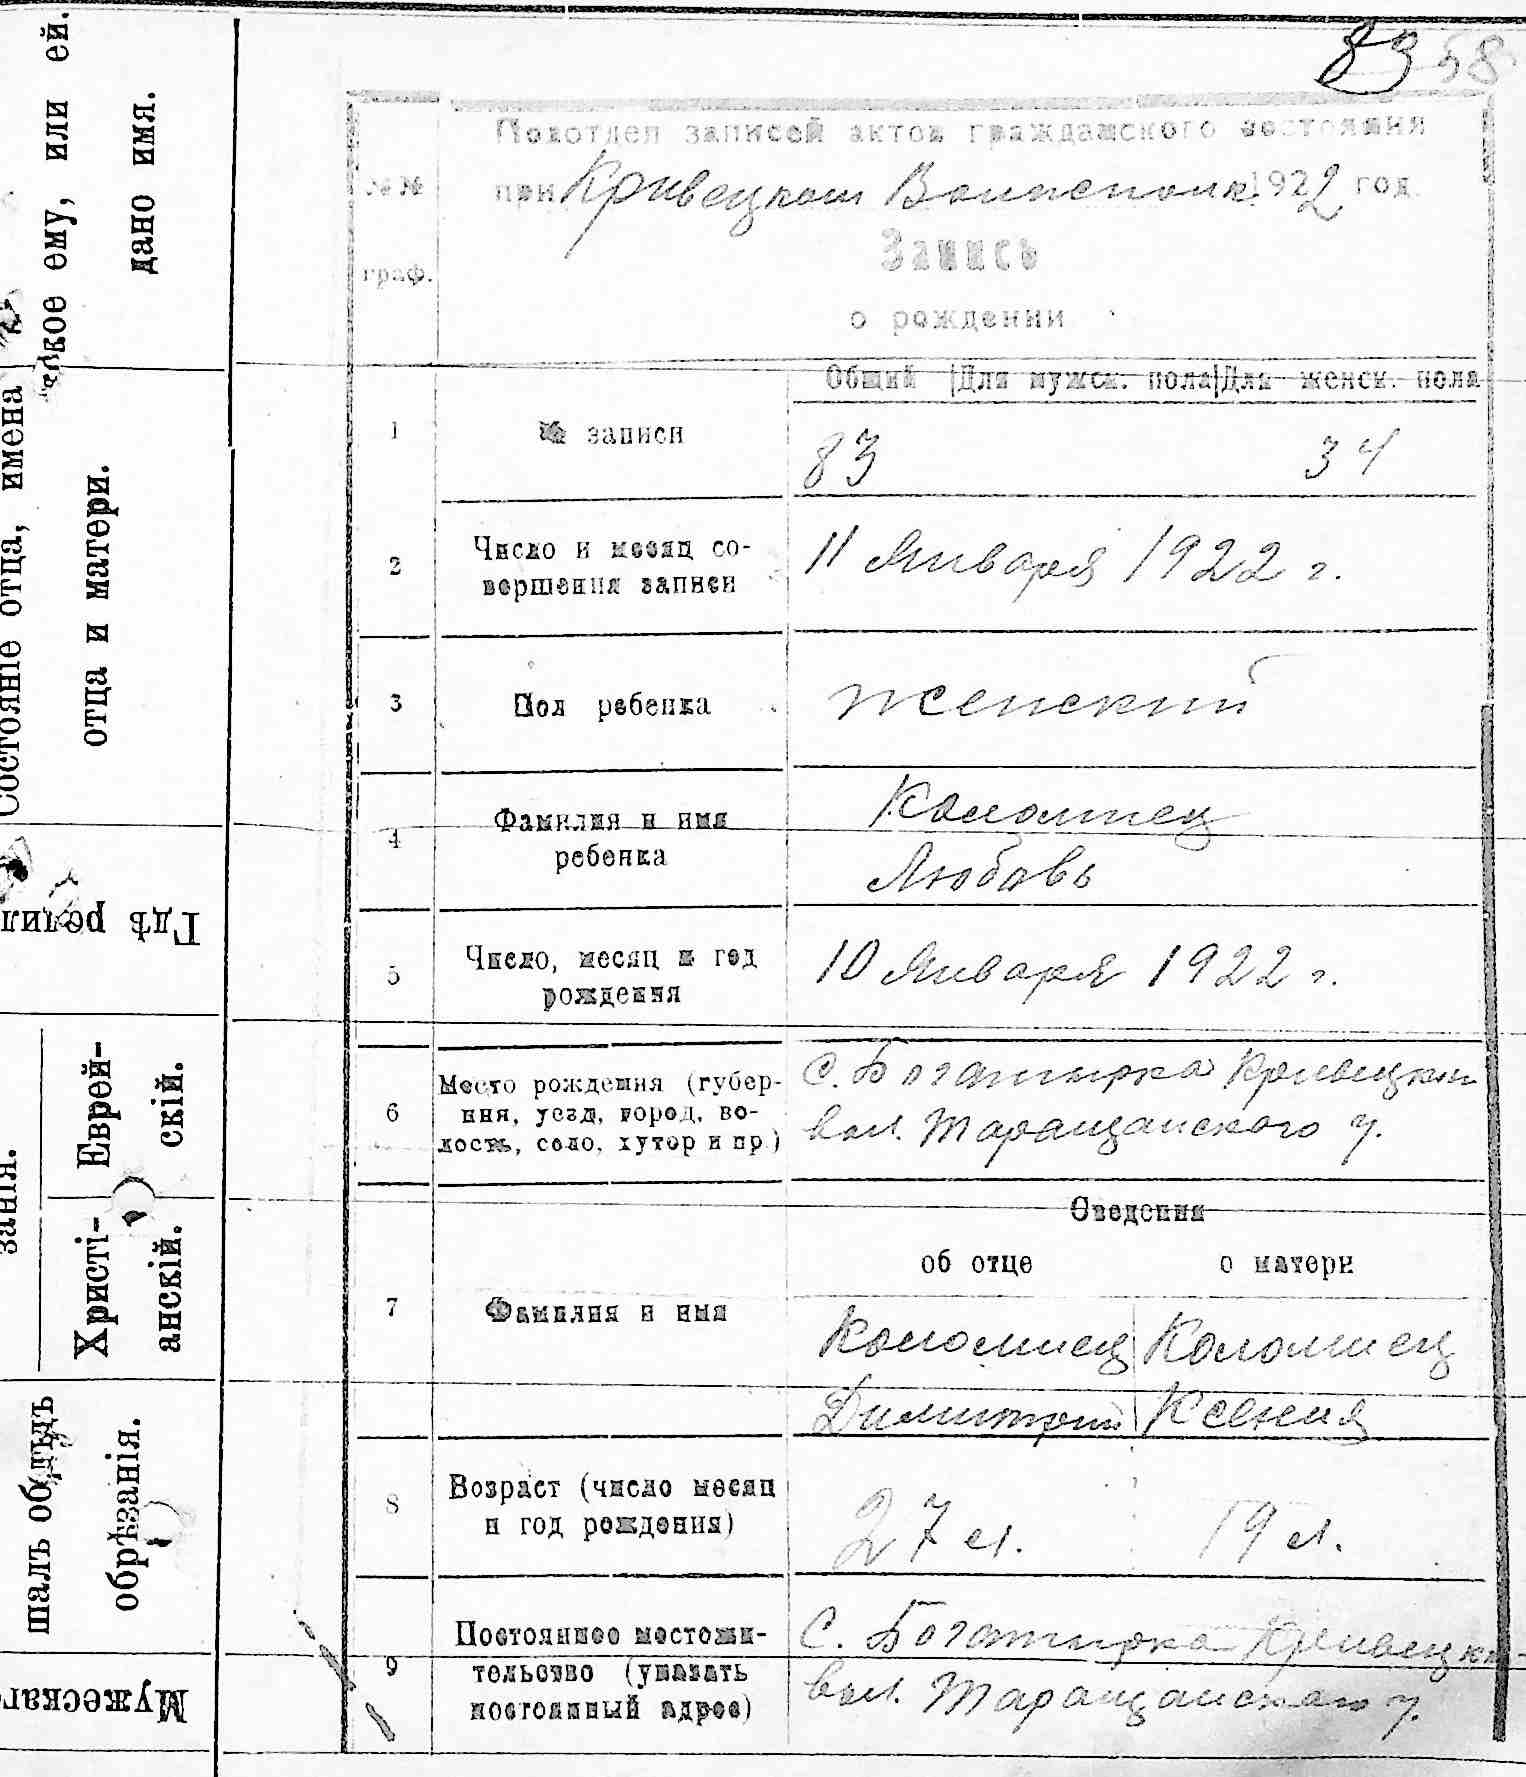 83 58
кое ему, или ей.
дано имя.
Состояніе отца, имена
отца и матери.
Гдѣ родил
Еврей-
скій.
Христі-
анскій.
занія.
шалъ обрядъ
обрѣзанія.
Мужескаго
Подотдел записей актов гражданского состояния
при Кривецком 1922 год.
№№
граф.
Запись
о рождении
Общий Для мужск. пола Для женск. пола
1 № записи 83 34
2 Число и месяц со-
вершения записи
11 Января 1922 г.
3 Пол ребенка женский
4 Фамилия и имя
ребенка
Коломиец
Любовь
5 Число, месяц и год
рождения
10 Января 1922 г.
6 Место рождения (губер-
ния, уезд, город, во-
лость, село, хутор и пр.)
С. Богатырка Кривецкой
вол. Таращанского у.
Сведения
об отце о матери
7 Фамилия и имя
Коломиец Коломиец
Димитрий Ксения
8 Возраст (число месяц
и год рождения)
27 л. 19 л.
9 Постоянное местожи-
тельство (указать
постоянный адрес)
С. Богатырка Кривецкой
вол. Таращанского у.